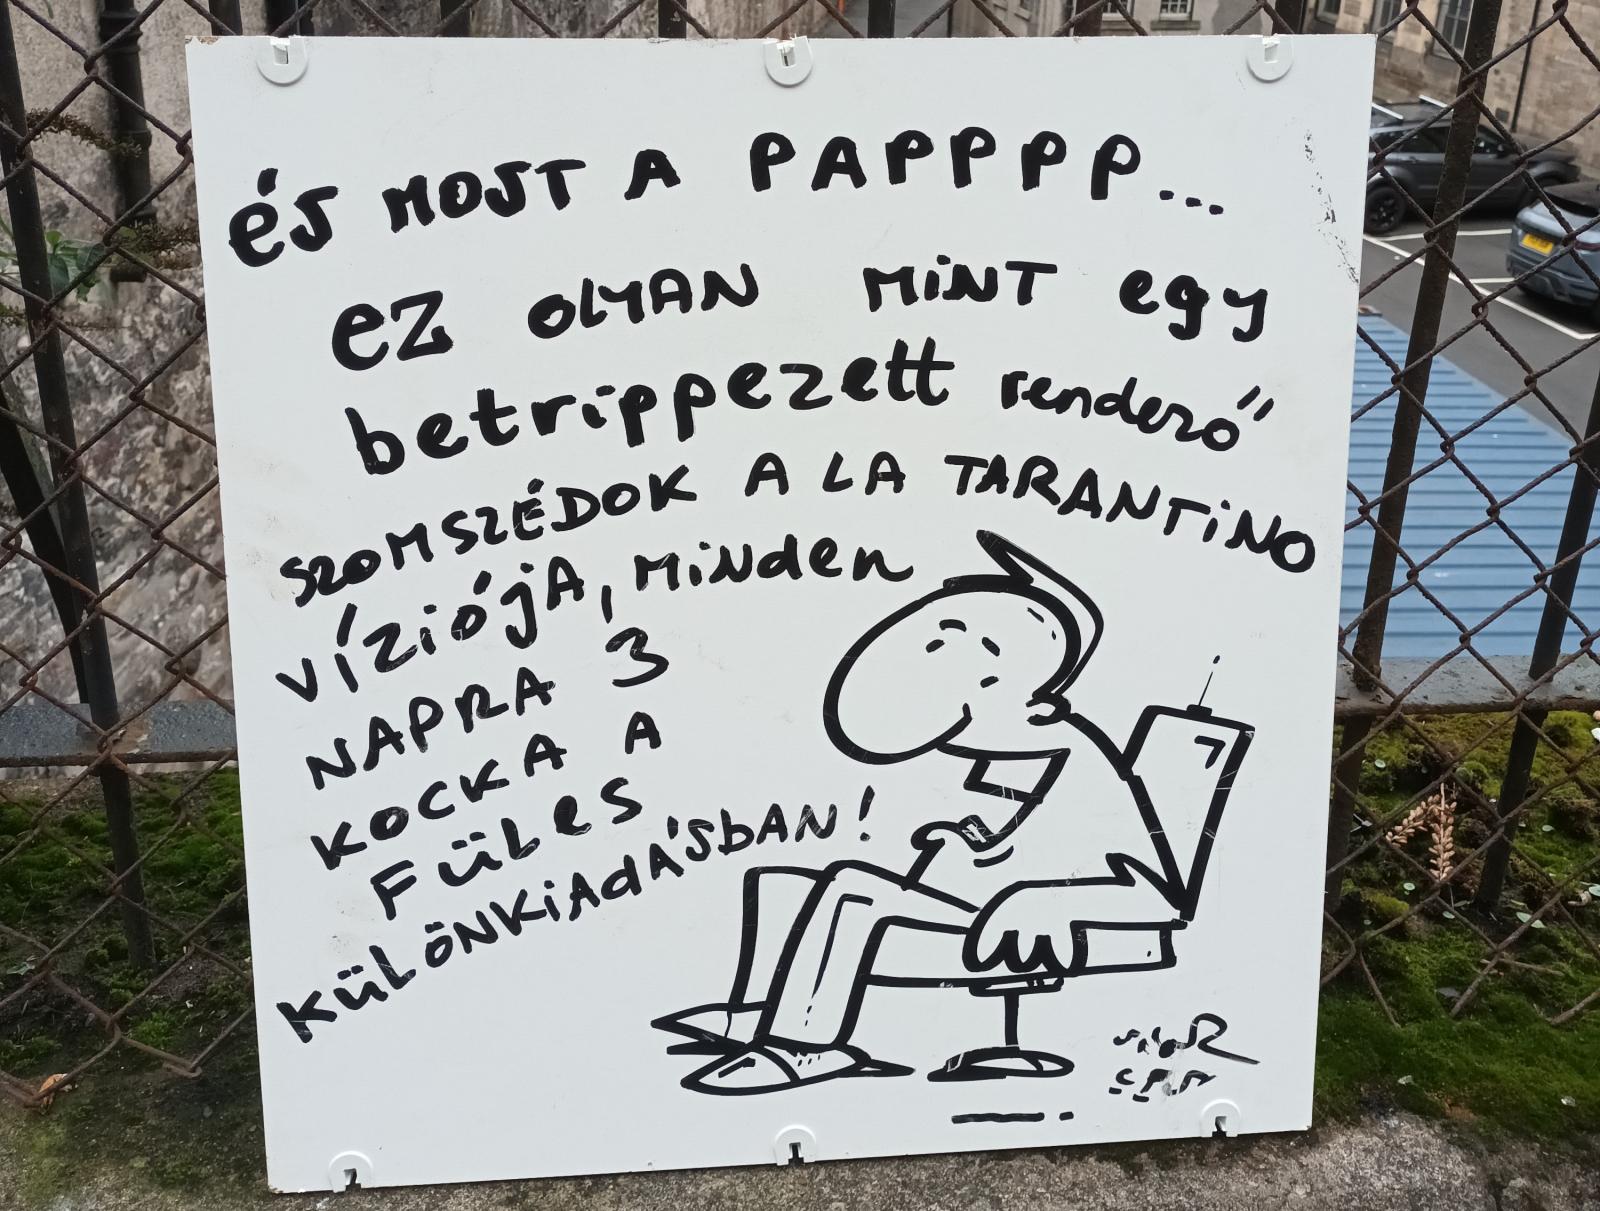 és MOST A PAPPPP...
ez OLYAN MINT egy
betrippezett rendező
SZOMSZÉDOK A LA TARANTINO
VÍZIÓJA, MINden
NAPRA 3
KOCKA A
FÜLeS
KÜLÖNKIAdÁSbAN!